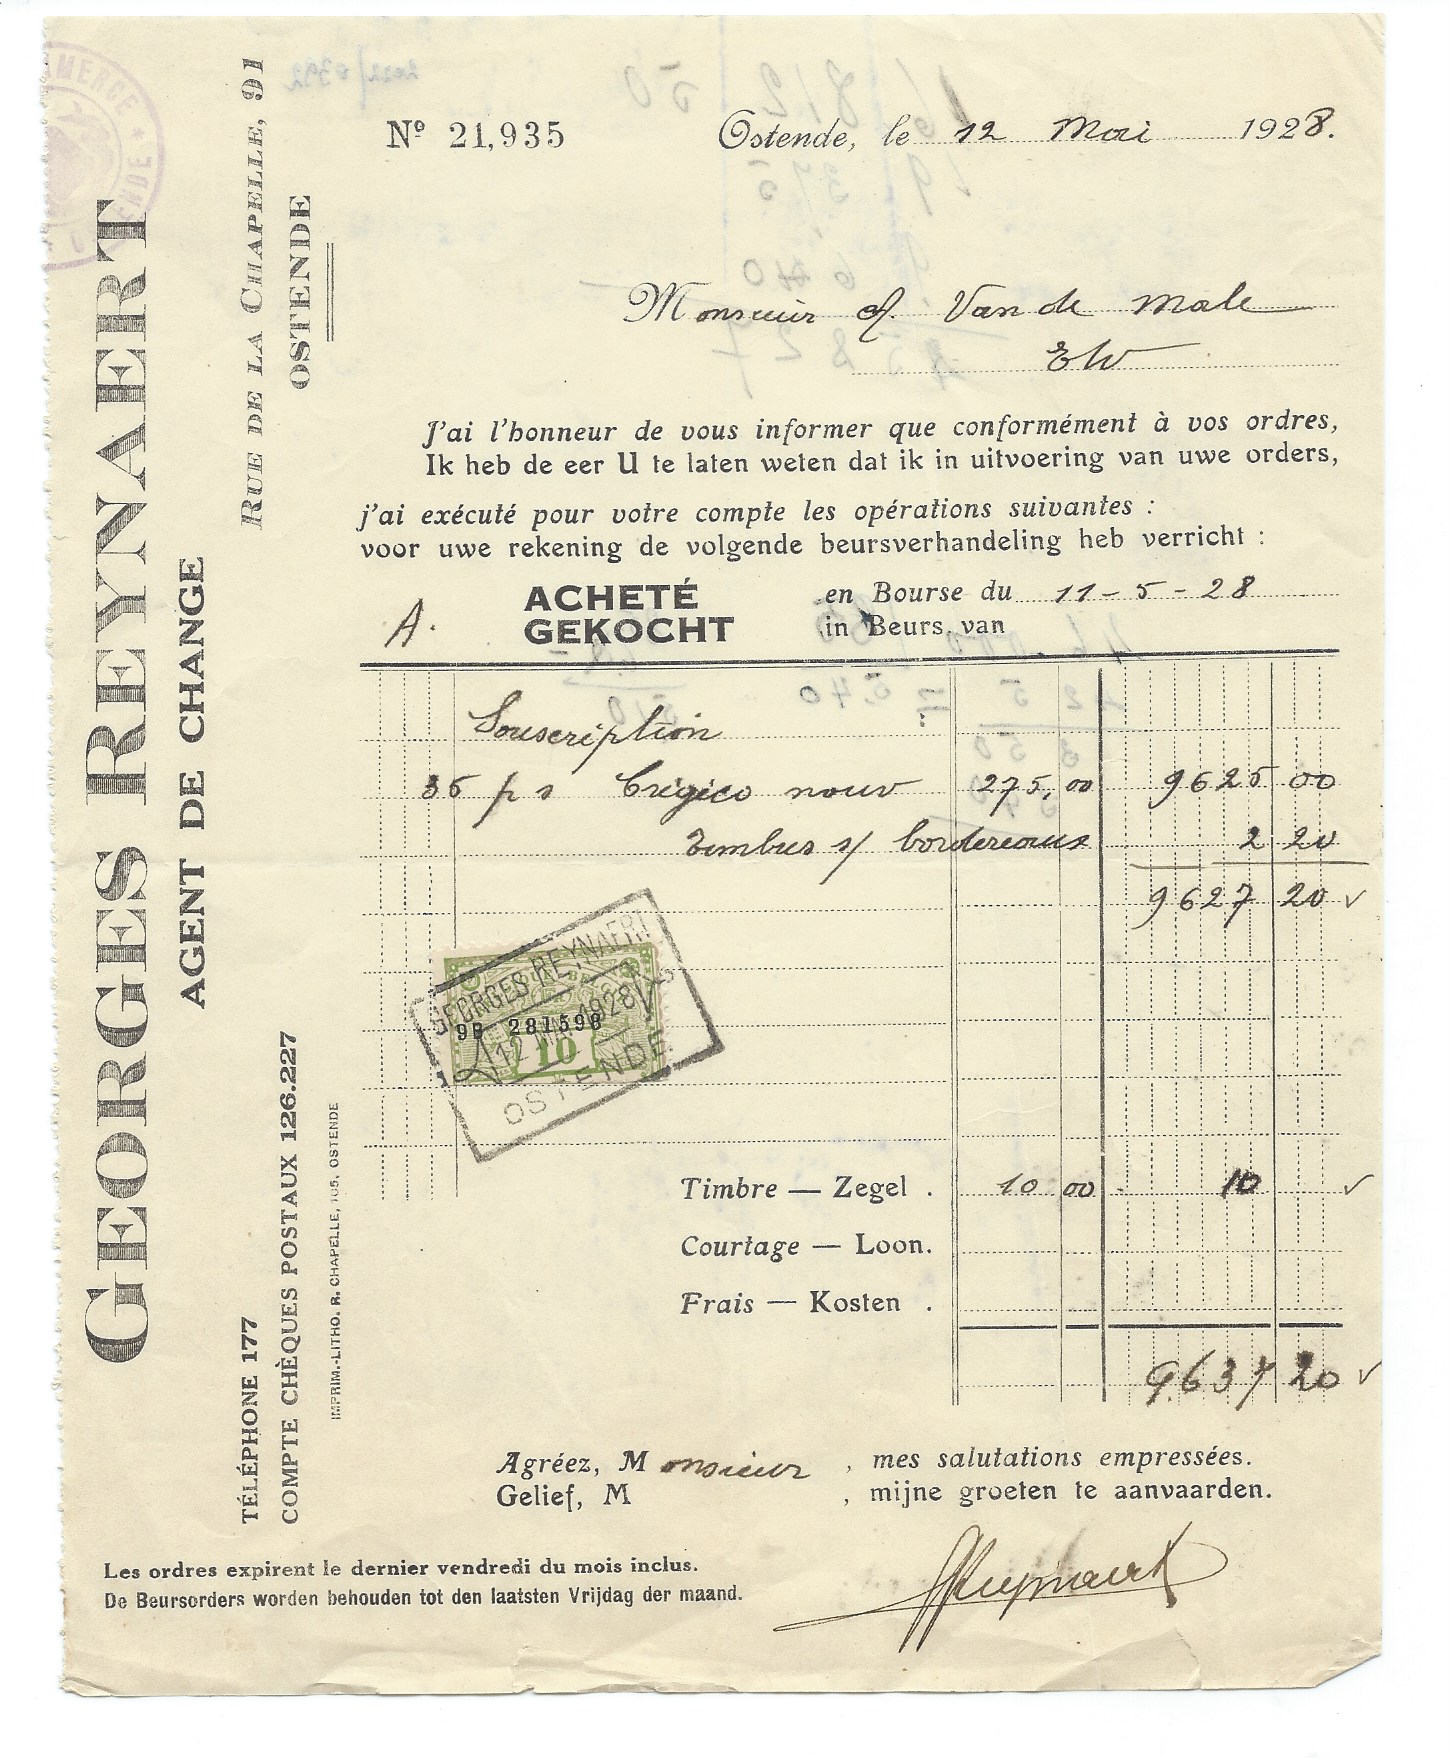 GEORGES REYNAERT
AGENT DE CHANGE
RUE DE LA CHAPELLE, 91
OSTENDE
TÉLÉPHONE 177
COMPTE CHÈQUES POSTAUX 126.227
IMPRIM.-LITHO. R. CHAPELLE, 105, OSTENDE
Nº 21,935
Ostende, le 12 Mai 1928.
Monsieur Van de Male
J'ai l'honneur de vous informer que conformément à vos ordres,
Ik heb de eer U te laten weten dat ik in uitvoering van uwe orders,
j'ai exécuté pour votre compte les opérations suivantes :
voor uwe rekening de volgende beursverhandeling heb verricht :
A. ACHETÉ en Bourse du 11-5-28
GEKOCHT in Beurs van
Souscription
35 p s nouv 275,00 9625 00
s/ bordereaux 2 20
9627 20
GEORGES REYNAERT
9B 281598
12 MAI 1928
10
OSTENDE
Timbre — Zegel . 10 00 10
Courtage — Loon.
Frais — Kosten .
9637 20
Agréez, Monsieur, mes salutations empressées.
Gelief, M , mijne groeten te aanvaarden.
GReynaert
Les ordres expirent le dernier vendredi du mois inclus.
De Beursorders worden behouden tot den laatsten Vrijdag der maand.